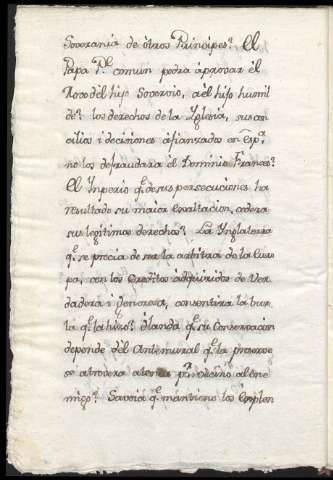 Soverania de otros Principes? El
Papa Pe. comun podra aprovar él
del hijo Sovervio, a él hijo humil
de? los derechos de la Yglesia, sus con
cilios i decisiones afianzados en Espa.
no los defraudara el Dominio Frances?
El Imperio qe. de sus persecuciones ha
resultado su maior exaltacion, cedera
sus legitimos derechos? La Ynglaterra
qe. se precia de ser la arbitra de la Euro
pa, con los creditos adquiridos de Ver
dadera i Generosa, consentira la bur
la qe. la hizo? Olanda qe. su Conservacion
depende del Antemural qe. la protexe
se atrevera a tener pr. vecino al ene
migo? Savoia qe. mantiene los